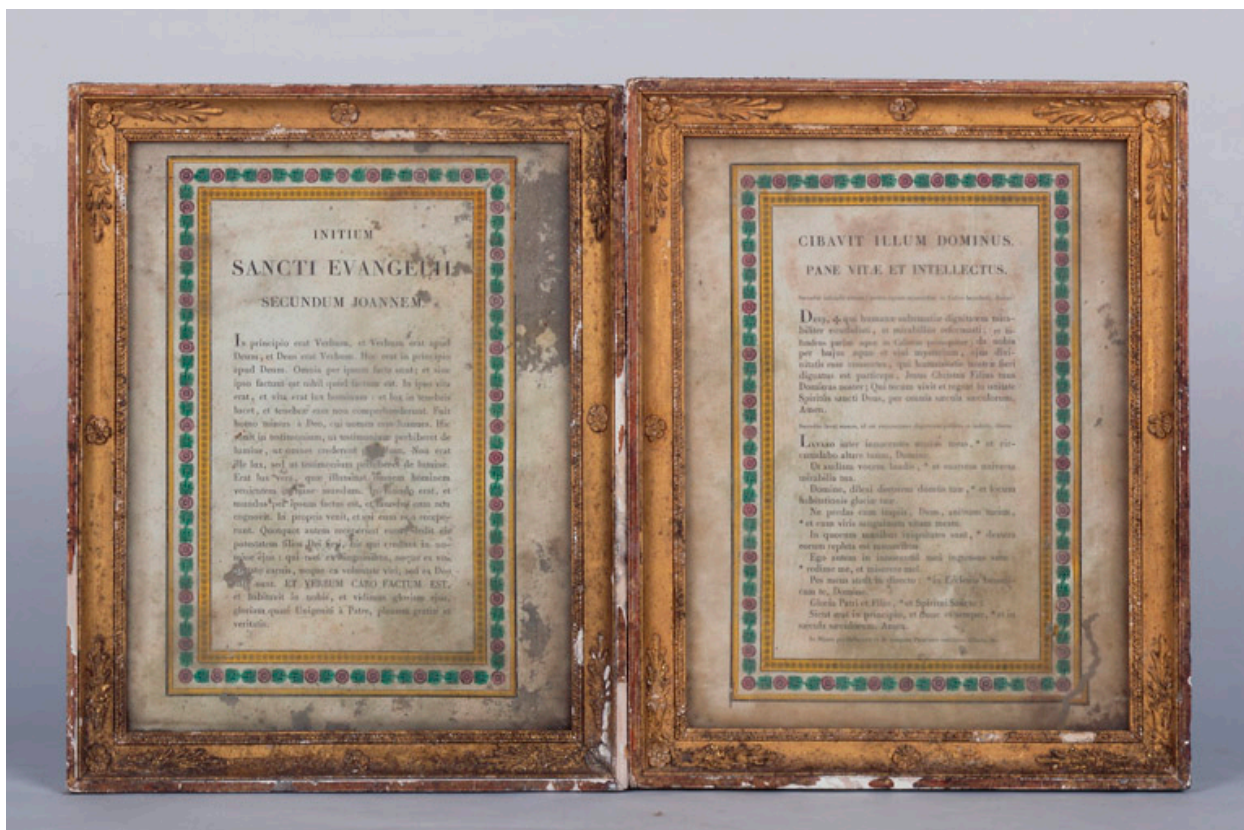 INITIUM
SANCTI EVANGELII
SECUNDUM JOANNEM.
In principio erat Verbum, et Verbum erat apud
Deum, et Deus erat Verbum. Hoc erat in principio
apud Deum. Omnia per ipsum facta sunt; et sine
ipso factum est nihil quod factum est. In ipso vita
erat, et vita erat lux hominum: et lux in tenebris
lucet, et tenebræ eam non comprehenderunt. Fuit
homo missus à Deo, cui nomen erat Joannes. Hic
venit in testimonium, ut testimonium perhiberet de
lumine, ut omnes crederent per illum. Non erat
ille lux, sed ut testimonium perhiberet de lumine.
Erat lux vera, quæ illuminat omnem hominem
venientem in hunc mundum. In mundo erat, et
mundus per ipsum factus est, et mundus eum non
cognovit. In propria venit, et sui eum non recepe-
runt. Quotquot autem receperunt eum, dedit eis
potestatem filios Dei fieri, his qui credunt in no-
mine ejus: qui non ex sanguinibus, neque ex vo-
luntate carnis, neque ex voluntate viri, sed ex Deo
nati sunt. ET VERBUM CARO FACTUM EST,
et habitavit in nobis, et vidimus gloriam ejus,
gloriam quasi Unigeniti à Patre, plenum gratiæ et
veritatis.
CIBAVIT ILLUM DOMINUS.
PANE VITÆ ET INTELLECTUS.
Deus, qui humanæ substantiæ dignitatem mira-
biliter condidisti, et mirabiliùs reformasti: da nobis
per hujus aquæ et vini mysterium, ejus divi-
nitatis esse consortes, qui humanitatis nostræ fieri
dignatus est particeps, Jesus Christus Filius tuus
Dominus noster; Qui tecum vivit et regnat in unitate
Spiritûs sancti Deus, per omnia sæcula sæculorum.
Amen.
Lavabo inter innocentes manus meas, * et cir-
cumdabo altare tuum, Domine.
Ut audiam vocem laudis, * et enarrem universa
mirabilia tua.
Domine, dilexi decorem domûs tuæ, * et locum
habitationis gloriæ tuæ.
Ne perdas cum impiis, Deus, animam meam,
* et cum viris sanguinum vitam meam.
In quorum manibus iniquitates sunt, * dextera
eorum repleta est muneribus.
Ego autem in innocentiâ meâ ingressus sum:
* redime me, et miserere meî.
Pes meus stetit in directo: * in Ecclesiis benedi-
cam te, Domine.
Gloria Patri et Filio, * et Spiritui Sancto:
Sicut erat in principio, et nunc et semper, * et in
sæcula sæculorum. Amen.